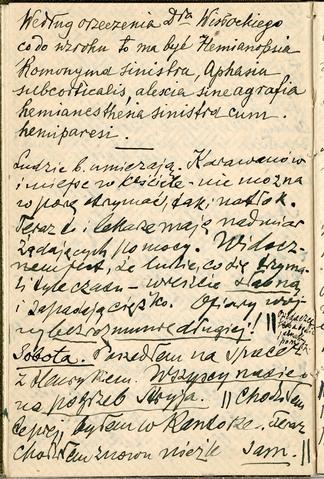 Według orzeczenia Dra Wisłockiego
co do wzroku to ma być Hemianopsia
Homonyma sinistra, Aphasia
subcorticalis, alexia sine agrafia
hemianesthesia sinistra cum
hemiparesi.
Ludzie b. umierają. Karawanów
i miejsc w kościele - nie można
w porę otrzymać, tak, natłok.
Teraz to i lekarze mają nadmiar
żądających pomocy. Widocz-
nem jest, że ludzie, co się trzyma-
li tyle czasu - wreszcie słabną
i zapadają ciężko. Ofiary woj-
ny bezrozumnie długiej! ||
Sobota. Poszedłem na spacer
z Henrykiem. Wszyscy nadzieo
na pogrzeb Stryja. || Chodziłem
lepiej, byłem w Kantorze. Teraz
chodziłem znowu nieźle sam. ||